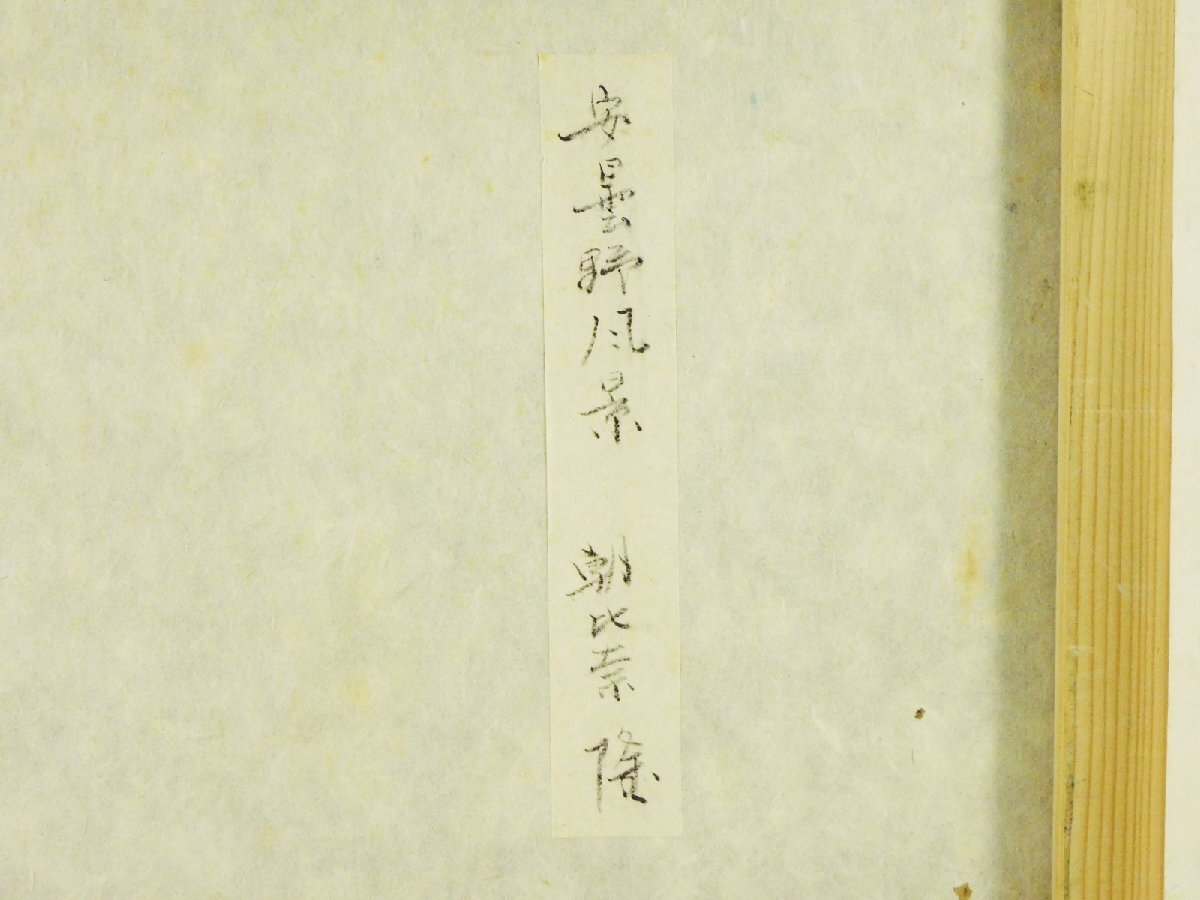 安曇野風景 朝比奈 隆